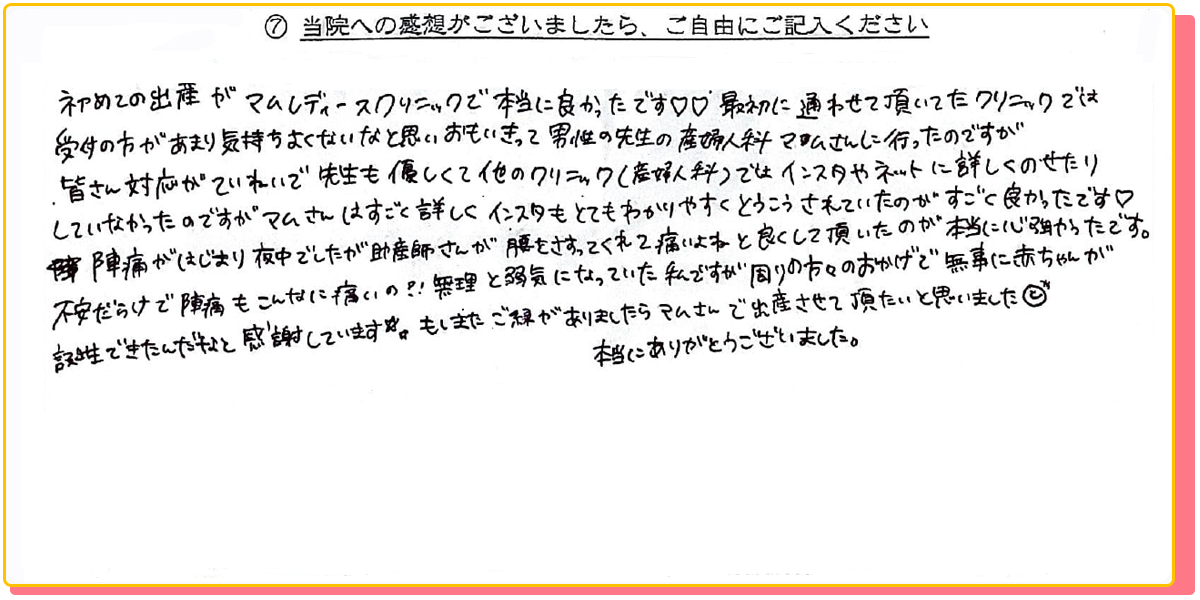 ⑦ 当院への感想がございましたら、ご自由にご記入ください
初めての出産が マムレディースクリニックで 本当に良かったです♡♡ 最初に 通わせて頂いてた クリニックでは
受付の方が あまり気持ちよくないなと思い おもいきって 男性の先生の 産婦人科 マムさんに行ったのですが
皆さん対応がていねいで 先生も 優しくて 他のクリニック(産婦人科)では インスタやネットに詳しくのせたり
していなかったのですが マムさんはすごく詳しく インスタもとてもわかりやすくとうこうされていたのが すごく良かったです♡
陣痛がはじまり 夜中でしたが 助産師さんが 腰をさすってくれて 痛いよねと良くして頂いたのが 本当に心強かったです。
不安だらけで 陣痛もこんなに痛いの?! 無理と弱気になっていた私ですが 周りの方々のおかげで 無事に赤ちゃんが
誕生できたんだなと 感謝しています☆。もしまたご縁がありましたら マムさんで出産させて頂たいと思いました☺
本当にありがとうございました。